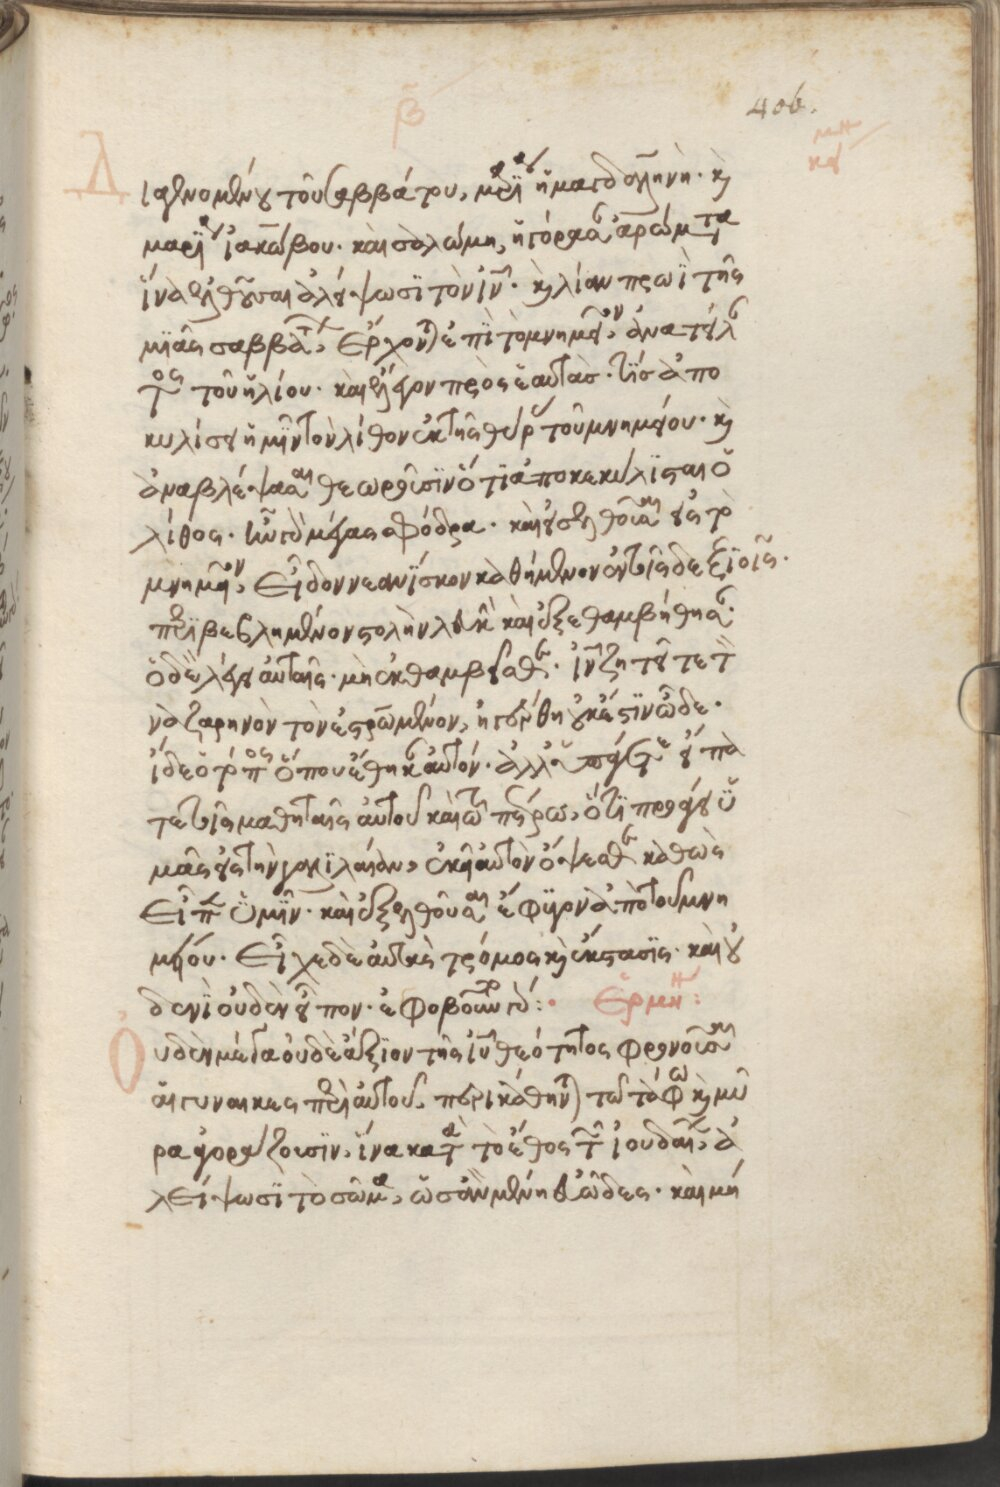 β
406.
μη
κφ
Διαγενομένου τοῦ σαββάτου, μαρία ἡ μαγδαληνὴ. κ
μαρία ἰακώβου. καὶ σαλώμη, ἠγόρασαν ἀρώματα
ἵνα ἐλθοῦσαι ἀλείψωσι τὸν ἰν. κ λίαν πρωῒ τῆς
μιᾶς σαββάτων, ἔρχονται ἐπὶ τὸ μνημεῖον, ἀνατείλαν
τος τοῦ ἡλίου. καὶ ἔλεγον πρὸς ἑαυτάς. τίς ἀπο
κυλίσει ἡμῖν τὸν λίθον ἐκ τῆς θύρας τοῦ μνημείου. κ
ἀναβλέψασαι θεωροῦσιν ὅτι ἀποκεκύλισται ὁ
λίθος. ἦν γὰρ μέγας σφόδρα. καὶ εἰσελθοῦσαι εἰς τὸ
μνημεῖον, εἶδον νεανίσκον καθήμενον ἐν τοῖς δεξιοῖς.
περιβεβλημένον στολὴν λευκὴν καὶ ἐξεθαμβήθησαν.
ὁ δὲ λέγει αὐταῖς. μὴ ἐκθαμβεῖσθε. ἰν ζητεῖτε τὸν
ναζαρηνὸν τὸν ἐσταυρωμένον, ἠγέρθη οὐκ ἔστιν ὧδε.
ἴδε ὁ τόπος ὅπου ἔθηκαν αὐτόν. ἀλλ' ὑπάγετε εἴπα
τε τοῖς μαθηταῖς αὐτοῦ καὶ τῶ πέτρω, ὅτι προάγει ὑ
μᾶς εἰς τὴν γαλιλαίαν, ἐκεῖ αὐτὸν ὄψεσθε καθὼς
εἶπεν ὑμῖν. καὶ ἐξελθοῦσαι ἔφυγον ἀπὸ τοῦ μνη
μείου. εἶχε δὲ αὐτὰς τρόμος κ ἔκστασις. καὶ οὐ
δενὶ οὐδὲν εἶπον. ἐφοβοῦντο γάρ: ἑρμη:
Οὐδὲν μέγα οὐδὲ ἄξιον τῆς ἰυ θεότητος φρονοῦσαι
αἱ γυναῖκες περὶ αὐτοῦ, περικάθηνται τῶ τάφω κ μύ
ρα ἀγοράζουσιν, ἵνα κατὰ τὸ ἔθος τῶν ἰουδαίων, ἀ
λείψωσι τὸ σῶμα, ὥστε μένειν εὐῶδες. καὶ μή